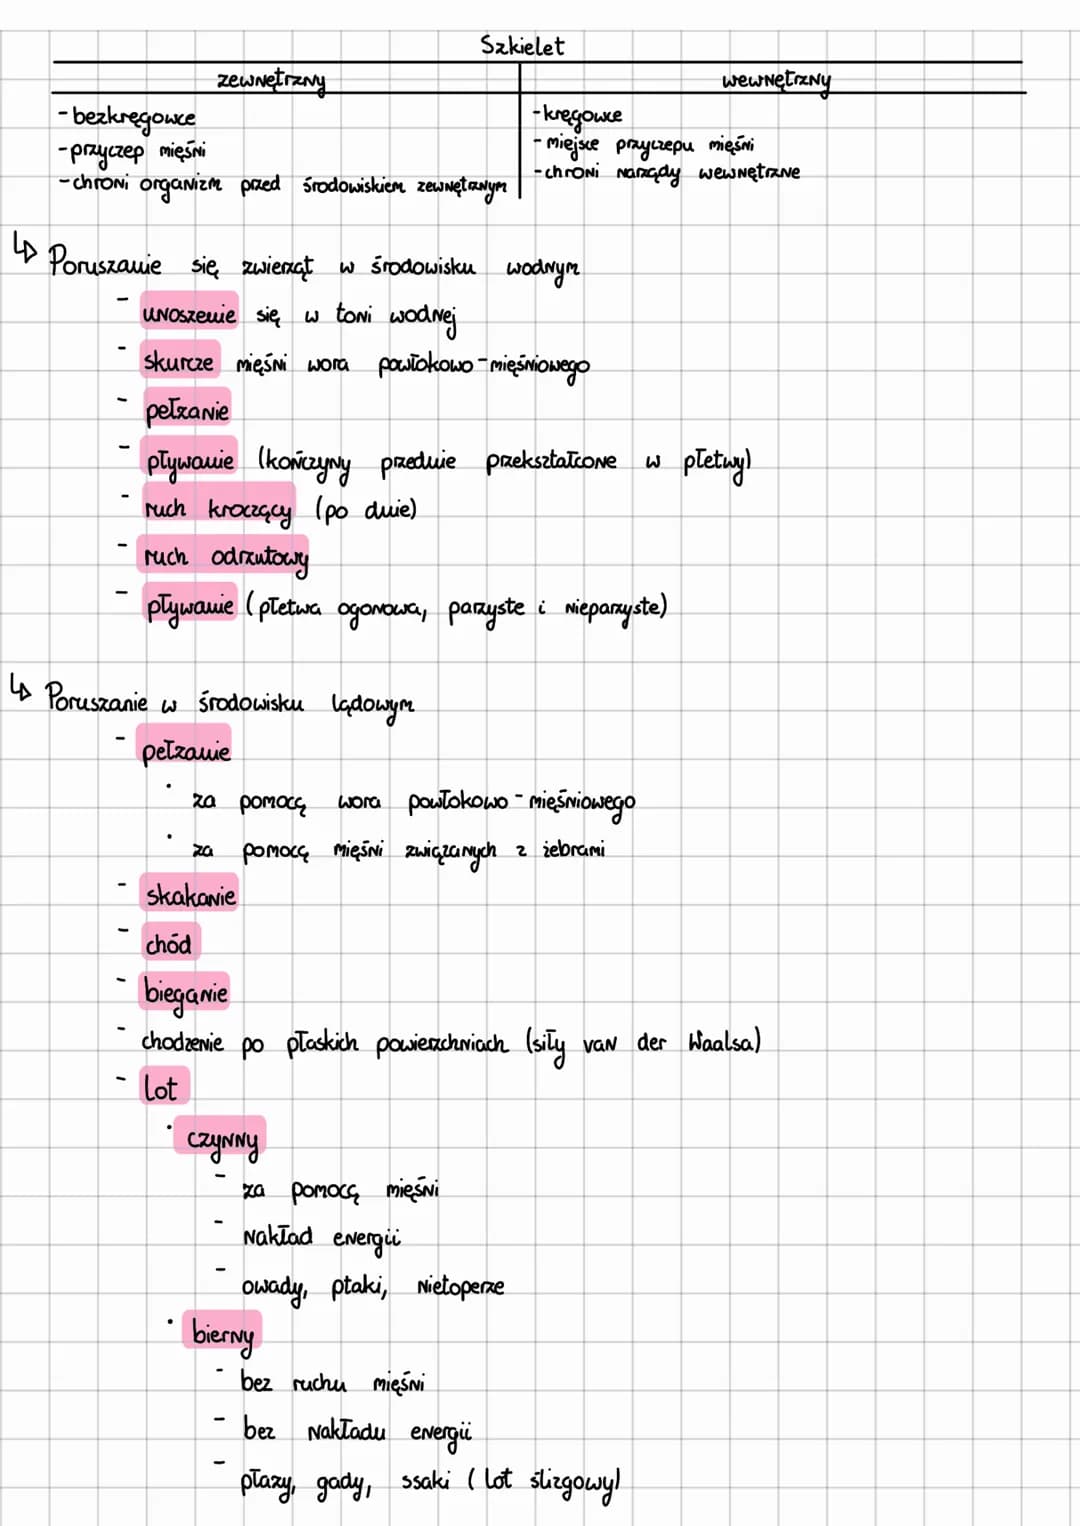 Szkielet
zewnętrzny wewnętrzny
- bezkręgowce
- przyczep mięśni
- chroni organizm przed środowiskiem zewnętrznym
- kręgowce
- miejsce przyczepu mięśni
- chroni narządy wewnętrzne
↳ Poruszanie się zwierząt w środowisku wodnym
- unoszenie się w toni wodnej
- skurcze mięśni wora powłokowo-mięśniowego
- pełzanie
- pływanie (kończyny przednie przekształcone w płetwy)
- ruch kroczący (po dnie)
- ruch odrzutowy
- pływanie (płetwa ogonowa, parzyste i nieparzyste)
↳ Poruszanie w środowisku lądowym
- pełzanie
· za pomocą wora powłokowo-mięśniowego
· za pomocą mięśni związanych z żebrami
- skakanie
- chód
- bieganie
- chodzenie po płaskich powierzchniach (siły van der Waalsa)
- lot
· czynny
- za pomocą mięśni
- nakład energii
- owady, ptaki, nietoperze
· bierny
- bez ruchu mięśni
- bez nakładu energii
- płazy, gady, ssaki (lot ślizgowy)